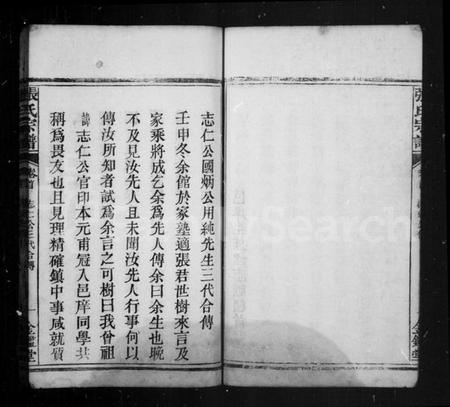 志仁公國炳公用純先生三代合傳
壬申冬余館於家塾適張君世樹來言及
家乘將成乞余爲先人傳余曰余生也晚
不及見汝先人且未聞汝先人行事何以
傳汝所知者試爲余言之可樹曰我曾祖
諱志仁公官印本元甫冠入邑庠同學共
稱爲畏友也且見理精確鎮中事咸就質
張氏宗譜
卷首
志仁公三代合傳
一
金鑑堂
張氏宗譜
金鑑堂